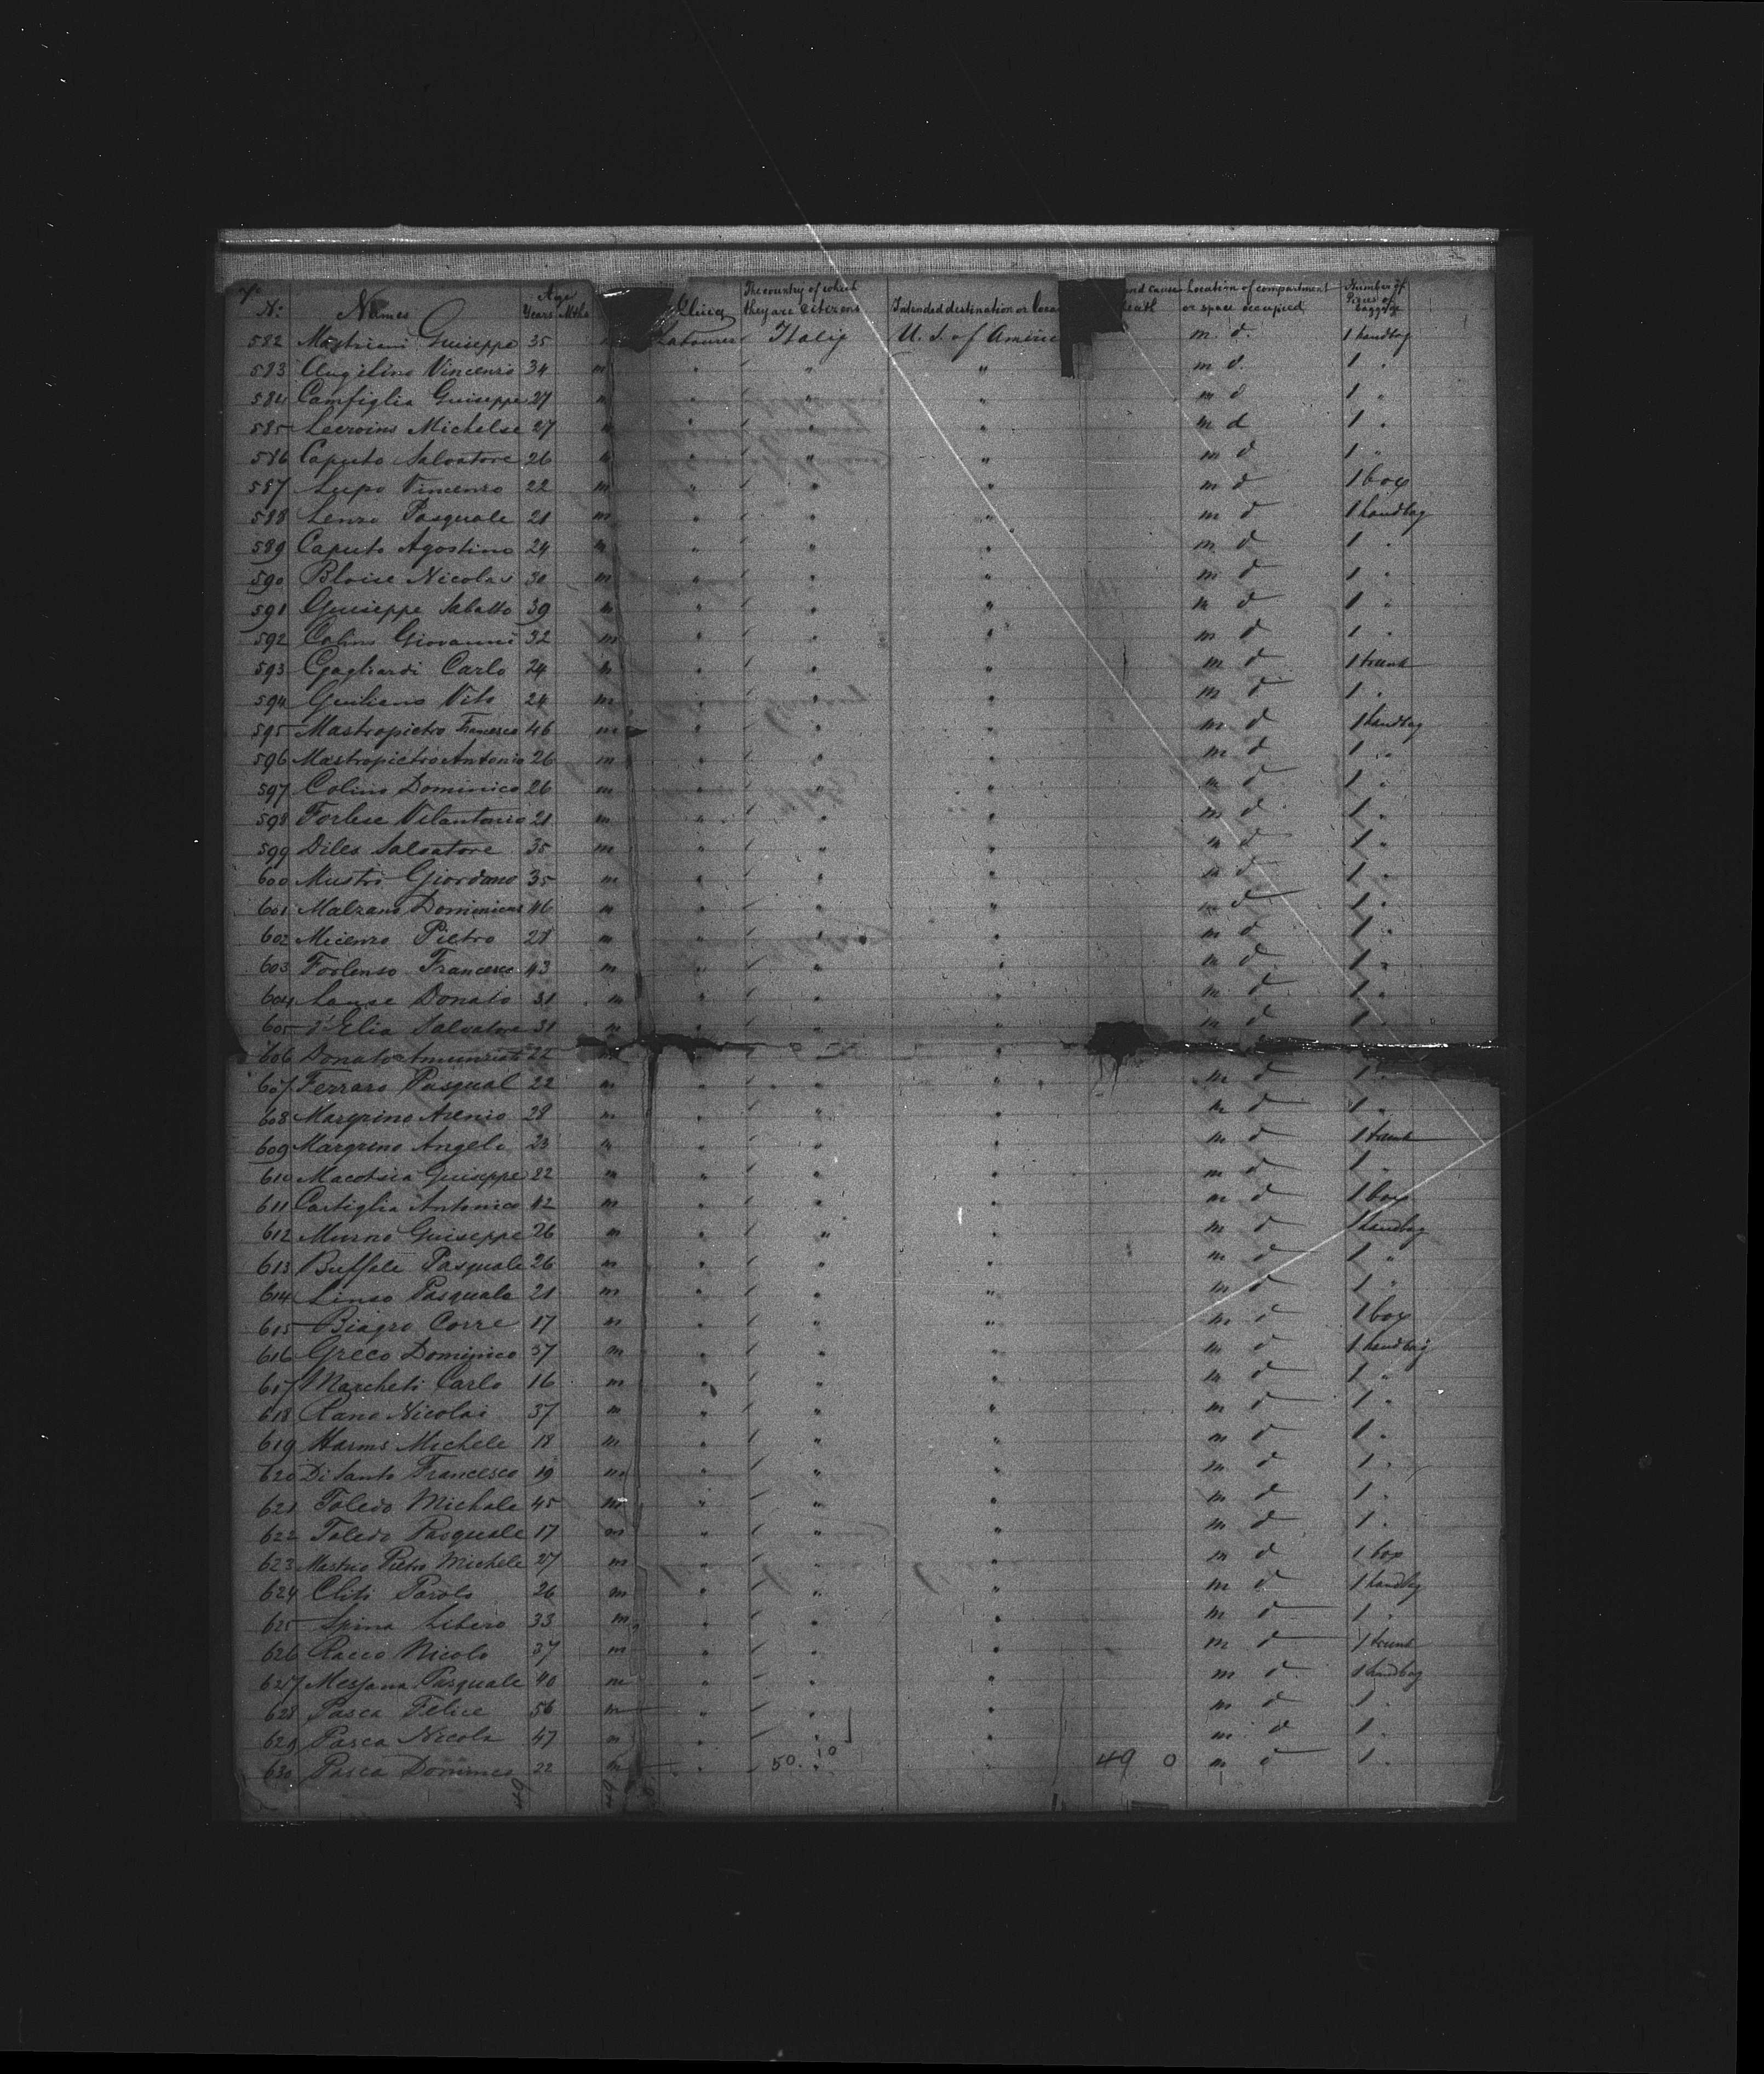 No. Names Age Years Mths The country of which they are citizens Intended destination or loca and cause death Location of compartment or space occupied Number of Pieces of Baggage
582 Mastriani Guiseppe 35 Labourer Italy U. S. of Americ m. d. 1 handbag
583 Angelino Vincenzo 34 m " " " m d. 1 "
584 Camfiglia Guiseppe 27 m " " " m d 1 "
585 Michelse 27 " " " m d 1 "
586 Caputo Salvatore 26 " " " m d 1 "
587 Lupo Vincenzo 22 m " " " m d 1 box
588 Lenzo Pasquale 21 m " " " m d 1 handbag
589 Caputo Agostino 24 " " " m d 1 "
590 Bloise Nicolas m " " " m d 1 "
591 Guiseppe Sabatto 39 m " " " m d 1 "
592 Giovanni 32 m " " " m d 1 "
593 Gagliardi Carlo 24 m " " " m d 1 trunk
594 Guiliano Vito 24 m " " " m d 1 "
595 Mastropietro Francesco 46 m " " " m d 1 handbag
596 Mastropietro Antonio 26 m " " " m d 1 "
597 Colino Dominico 26 m " " " m d 1 "
598 Vilantonio 21 m " " " m d 1 "
599 Diles Salvatore 35 m " " " m d 1 "
600 Mustro Giordano 35 m " " " m d 1 "
601 Malzano 46 m " " " m d 1 "
602 Micenzo Pietro 21 m " " " m d 1 "
603 Forlenso Francesco 43 m " " " m d 1 "
604 Donato 31 m " " " m d 1 "
605 d'Elia Salvatore 31 m " " " m d 1 "
606 Donato "
607 Ferraro Pasqual 22 m " " " m d 1 "
608 Margrino 28 m " " " m d 1 "
609 Margrino Angelo 23 m " " " m d 1 trunk
610 Guiseppe 22 m " " " m d 1 "
611 Castiglia Antonico 42 m " " " m d 1 box
612 Murno Guiseppe 26 m " " " m d 1 handbag
613 Pasquale 26 m " " " m d 1 "
614 Linso Pasquale 21 m " " " m d 1 "
615 Biagro Corre 17 m " " " m d 1 box
616 Greco Dominico 37 m " " " m d 1 handbag
617 Marcheti Carlo 16 m " " " m d 1 "
618 Nicolai 37 m " " " m d 1 "
619 Harms Michele 18 m " " " m d 1 "
620 Di Santo Francesco 19 m " " " m d 1 "
621 Toledo Michale 45 m " " " m d 1 "
622 Toledo Pasquale 17 m " " " m d 1 "
623 Mastro Pietro Michele 27 m " " " m d 1 box
624 26 m " " " m d 1 handbag
625 Spina Libero 33 m " " " m d 1 "
626 Nicolo 37 m " " " m d 1 trunk
627 Messana Pasquale 40 m " " " m d 1 handbag
628 Pasca Felice 56 m " " " m d 1 "
629 Pasca Nicola 47 m " " " m d 1 "
630 Pasca 22 m " 50. 10 " 49 0 m d 1 "